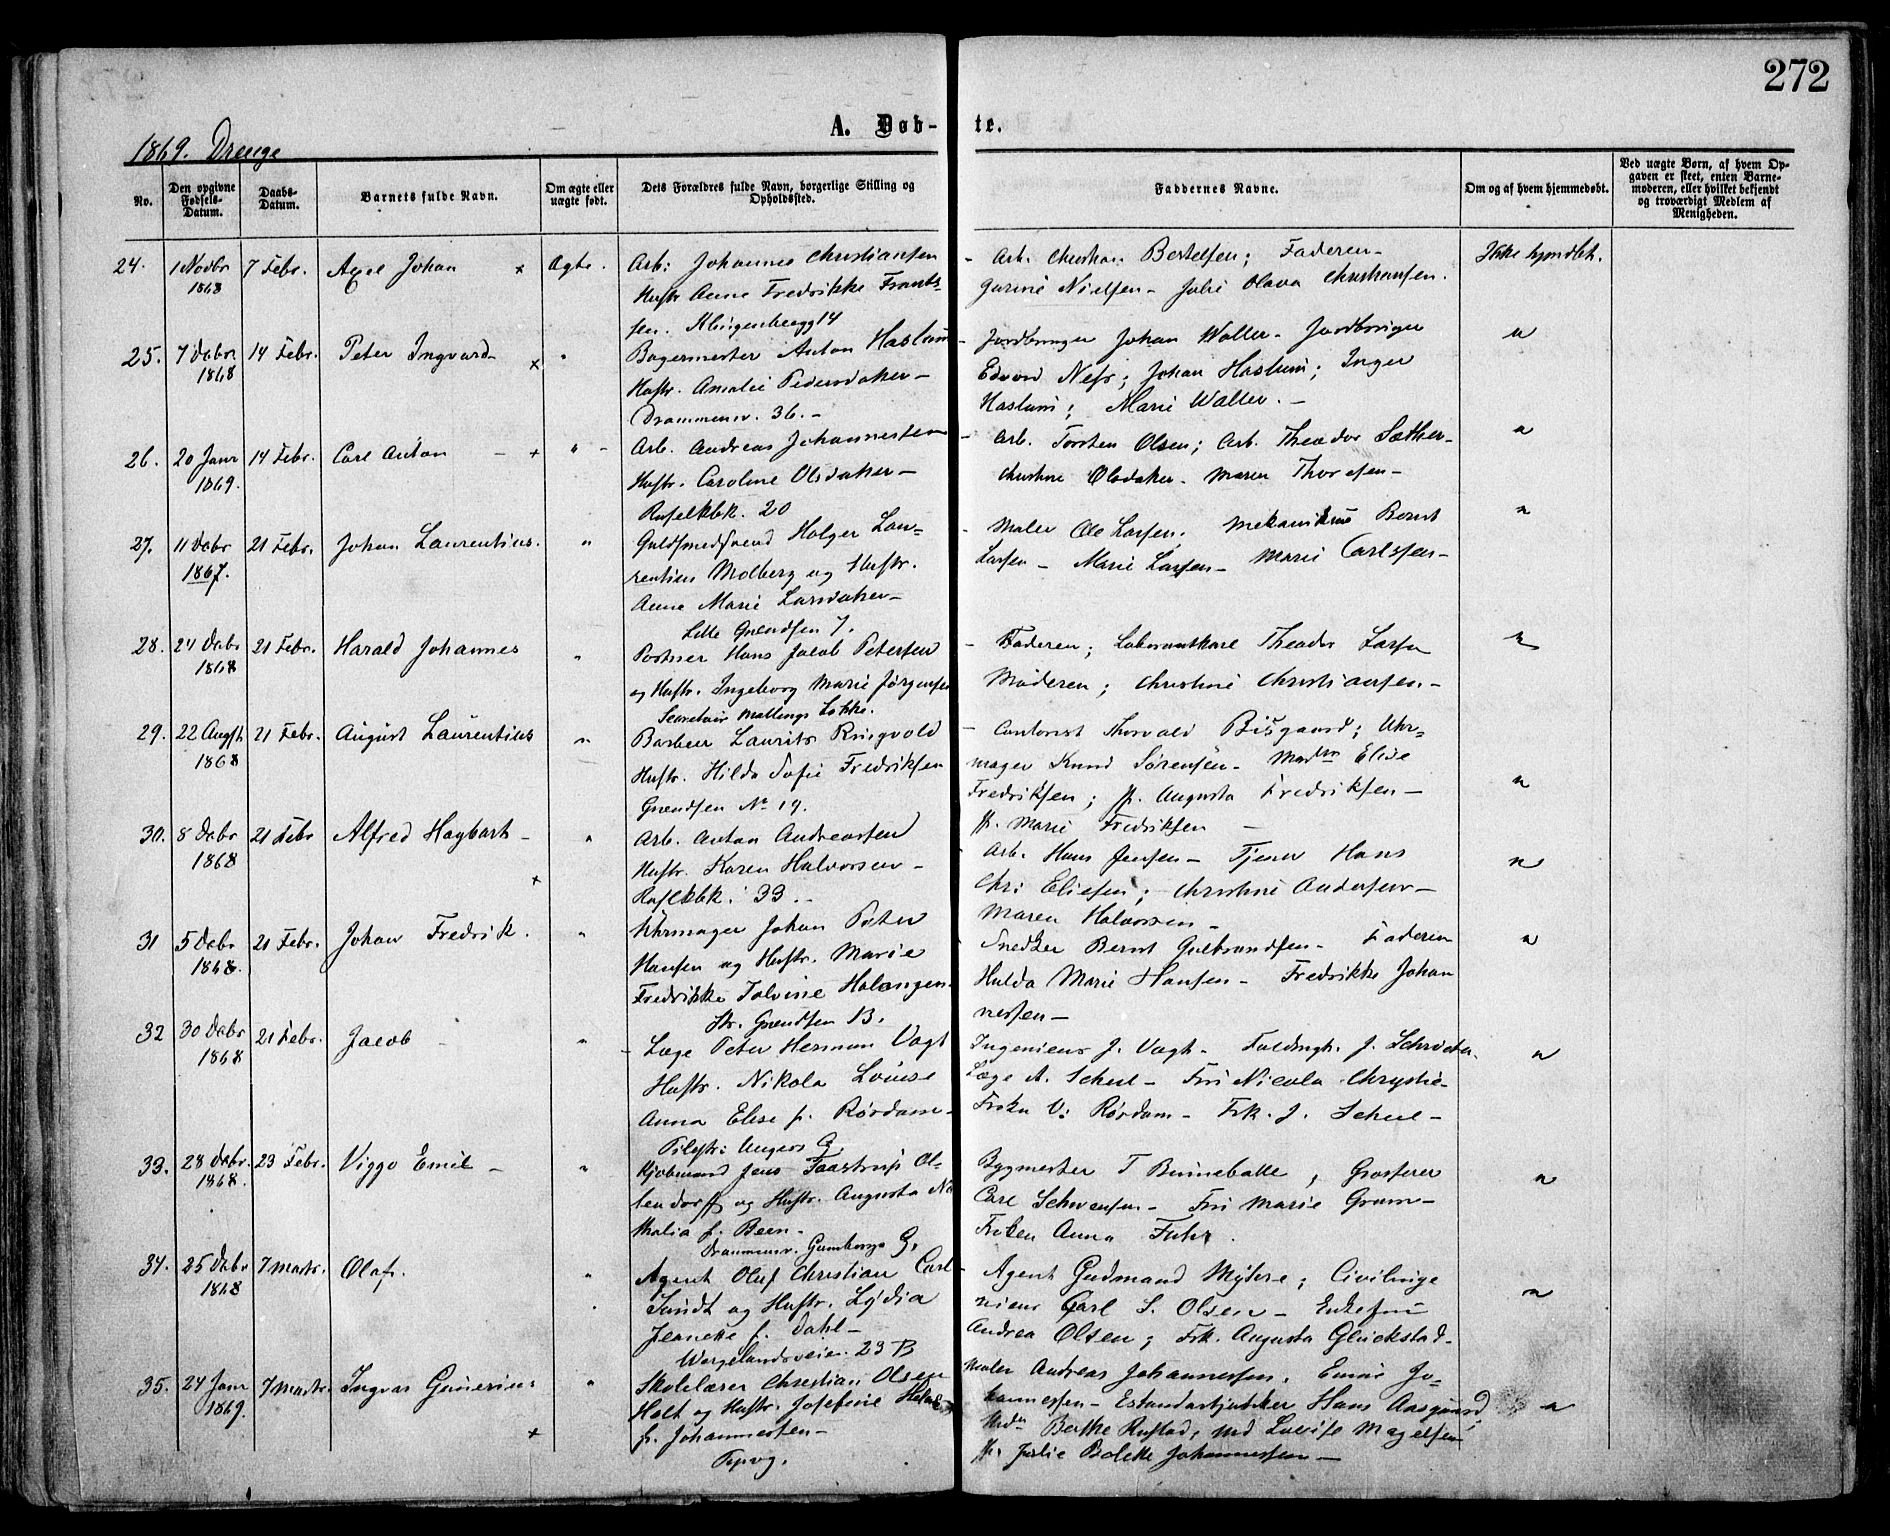 272
A. Døb- te.
1869. Drenge
No.
Den opgivne Fødsels-Datum.
Daabs-Datum.
Barnets fulde Navn.
Om ægte eller uægte født.
Dets Forældres fulde Navn, borgerlige Stilling og Opholdssted.
Faddernes Navne.
Om og af hvem hjemmedøbt.
Ved uægte Børn, af hvem Opgaven er skeet, enten Barnemoderen, eller hvilket bekjendt og troværdigt Medlem af Menigheden.
24. 1 Novbr 7 Febr. Axel Johan x Ægte. Arb: Johannes Christiansen - Arb. Christian Bertelsen; Faderen- Ikke hjmdbt.
1868 Hustr Anne Fredrikke Frants- Gurine Nielsen- Julie Olava Christiansen.
sen. Klingenbergg 14
25. 7 Decbr 14 Febr. Peter Ingvard- x " Bagermester Anton Haslum - Jordbruger Johan Waller- Jordbruger "
1868 Hustr. Amalie Pedersdatter- Edvard Ness; Johan Haslum; Inger
Drammensv. 36.- Haslum; Marie Waller.-
26. 20 Janr 14 Febr. Carl Anton - + " - Arb. Andreas Johannessen - Arb. Torsten Olsen; Arb. Theodor Sæther- "
1869. Hustr. Caroline Olsdatter- Christine Olsdatter- Maren Thoresen-
Ruselkbk. 20
27. 11 Decbr 21 Febr. Johan Laurentius. " Guldsmedsvend Holger Lau- - Maler Ole Larsen. Mekanikus Bernt "
1867. rentius Molberg og Hustr. Larsen- Marie Larsen- Marie Carlssen-
Anne Marie Larsdatter-
Lille Grendsen 7.
28. 24 Decbr 21 Febr. Harald Johannes " Portner Hans Jacob Petersen - Faderen; Laborantkarl Theodor Larsen "
1868 og Hustr. Ingeborg Marie Jørgensen Moderen; Christine Christiansen.-
Secretair Mallings Løkke.
29. 22 Augst. 21 Febr. August Laurentius " Barber Laurits Ringvold - Contorist Thorvald Bisgaard; Uhr-
1868 Hustr. Hilda Sofie Fredriksen mager Knud Sørensen- Madm Elise
Grendsen No 19. Fredriksen; fr. Augusta Fredriksen- "
fr. Marie Fredriksen -
30. 8 Decbr 21 Febr Alfred Hagbart- " Arb. Anton Andreassen Arb. Hans Jensen- Tjener Hans "
1868 + Hustr. Karen Halvorsen- Chr: Eliesen; Christine Andersen-
Ruselkbk. 33.. Maren Halvorsen-
31 5 Decbr 21 Febr. Johan Fredrik. " Uhrmager Johan Peter Snedker Bernt Gulbrandsen- Faderen "
1868. Hansen og Hustr. Marie Hulda Marie Hansen- Fredrikke Johan
Fredrikke Jalvine Halangen. nessen-
Str. Grendsen 13.
32 30 Decbr 21 Febr. Jacob - " - Læge Peter Herman Vogt Ingenieur J. Vogt- Fuldmgt. J. Schrøter. "
1868 Hustr. Nikola Louise Læge A. Scheel- Fru Nicola Chrystie-
Anna Elise f. Rørdam- Frøken V: Rørdam- Frk. J. Scheel-
Pilestr: Ungers G.
33. 28 Decbr. 23 Febr. Viggo Emil - " Kjøbmand Jens Faastrup Ol- Bygmester T Bunneballe, Grosserer "
1868. lendorff og Hustr. Augusta Na Carl Schwensen- Fru Marie Gram-
thalia f. Been- Frøken Anna Fuhr.
Drammensv. Gambergs G.
34. 25 Decbr 7 Marts. Olaf. " Agent Oluf Christian Carl- Agent Gudmand Myhre; Civilinge
1868 Sundt og Hustr. Lydia nieur Carl S. Olsen- Enkefru "
Jeanette f. Dahl- Andrea Olsen; Frk. Augusta Glückstad-
Wergelandsveien 23 B
35. 24 Janr 7 Marts. Ingvar Gunerius " Skolelærer Christian Olsen Maler Andreas Johannessen. Emil Jo-
1869. Holt og Hustr. Josefine hannessen- Hans Aasgaard, "
+ f. Johannessen- Mdm Berthe Rustad, Md Lovise Magelsen
Topvg. fr. Julie Bolette Johannessen-